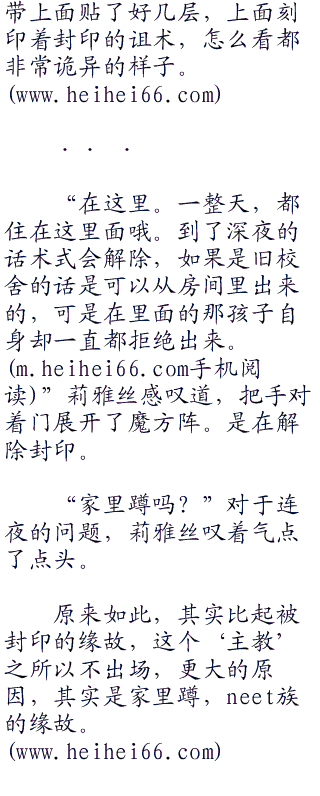 带上面贴了好几层，上面刻
印着封印的诅术，怎么看都
非常诡异的样子。
(www.heihei66.com)
. . .
“在这里。一整天，都
住在这里面哦。到了深夜的
话术式会解除，如果是旧校
舍的话是可以从房间里出来
的，可是在里面的那孩子自
身却一直都拒绝出来。
(m.heihei66.com手机阅
读)”莉雅丝感叹道，把手对
着门展开了魔方阵。是在解
除封印。
“家里蹲吗？”对于连
夜的问题，莉雅丝叹着气点
了点头。
原来如此，其实比起被
封印的缘故，这个‘主教’
之所以不出场，更大的原
因，其实是家里蹲，neet族
的缘故。
(www.heihei66.com)